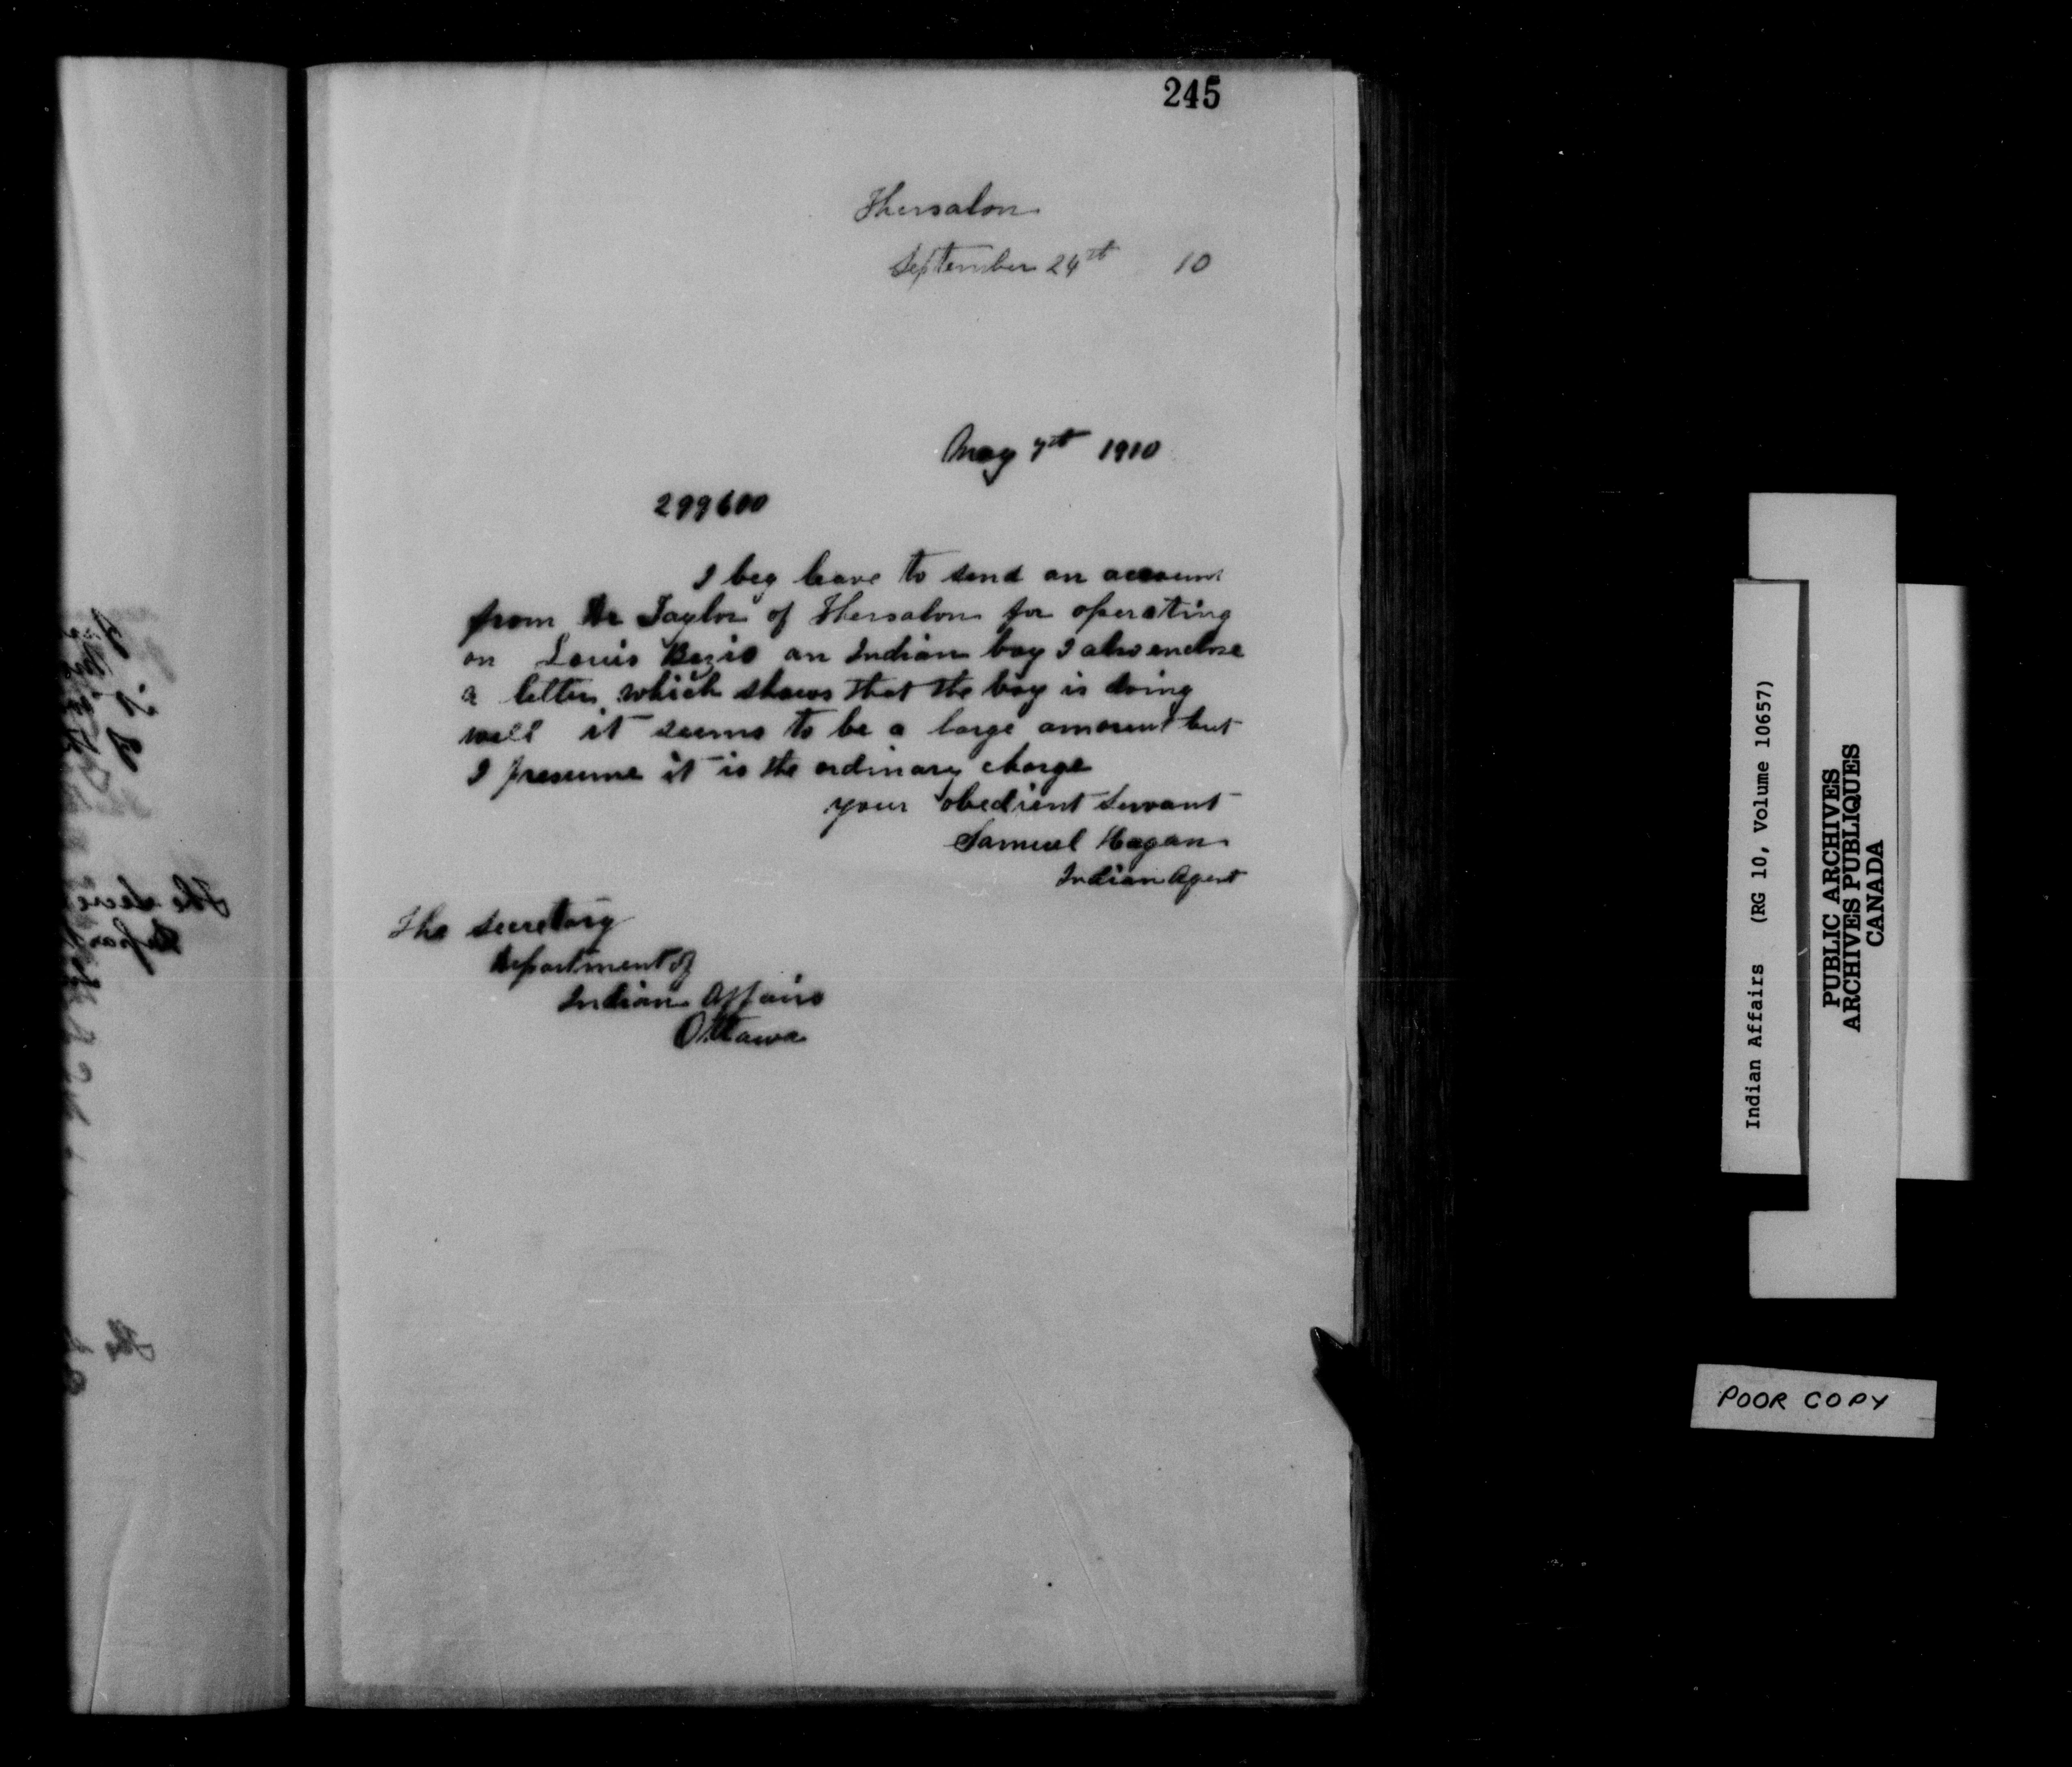 245
Thessalon
September 24th 10
May 7th 1910
299600
I beg leave to send an account
from Dr Taylor of Thessalon for operating
on Louis an Indian boy I also enclose
a letter which shows that the boy is doing
well it seems to be a large amount but
I presume it is the ordinary charge
your obedient servant
Samuel Hagan
Indian Agent
The Secretary
Department of
Indian Affairs
Ottawa
Indian Affairs (RG 10, Volume 10657)
PUBLIC ARCHIVES
ARCHIVES PUBLIQUES
CANADA
POOR COPY